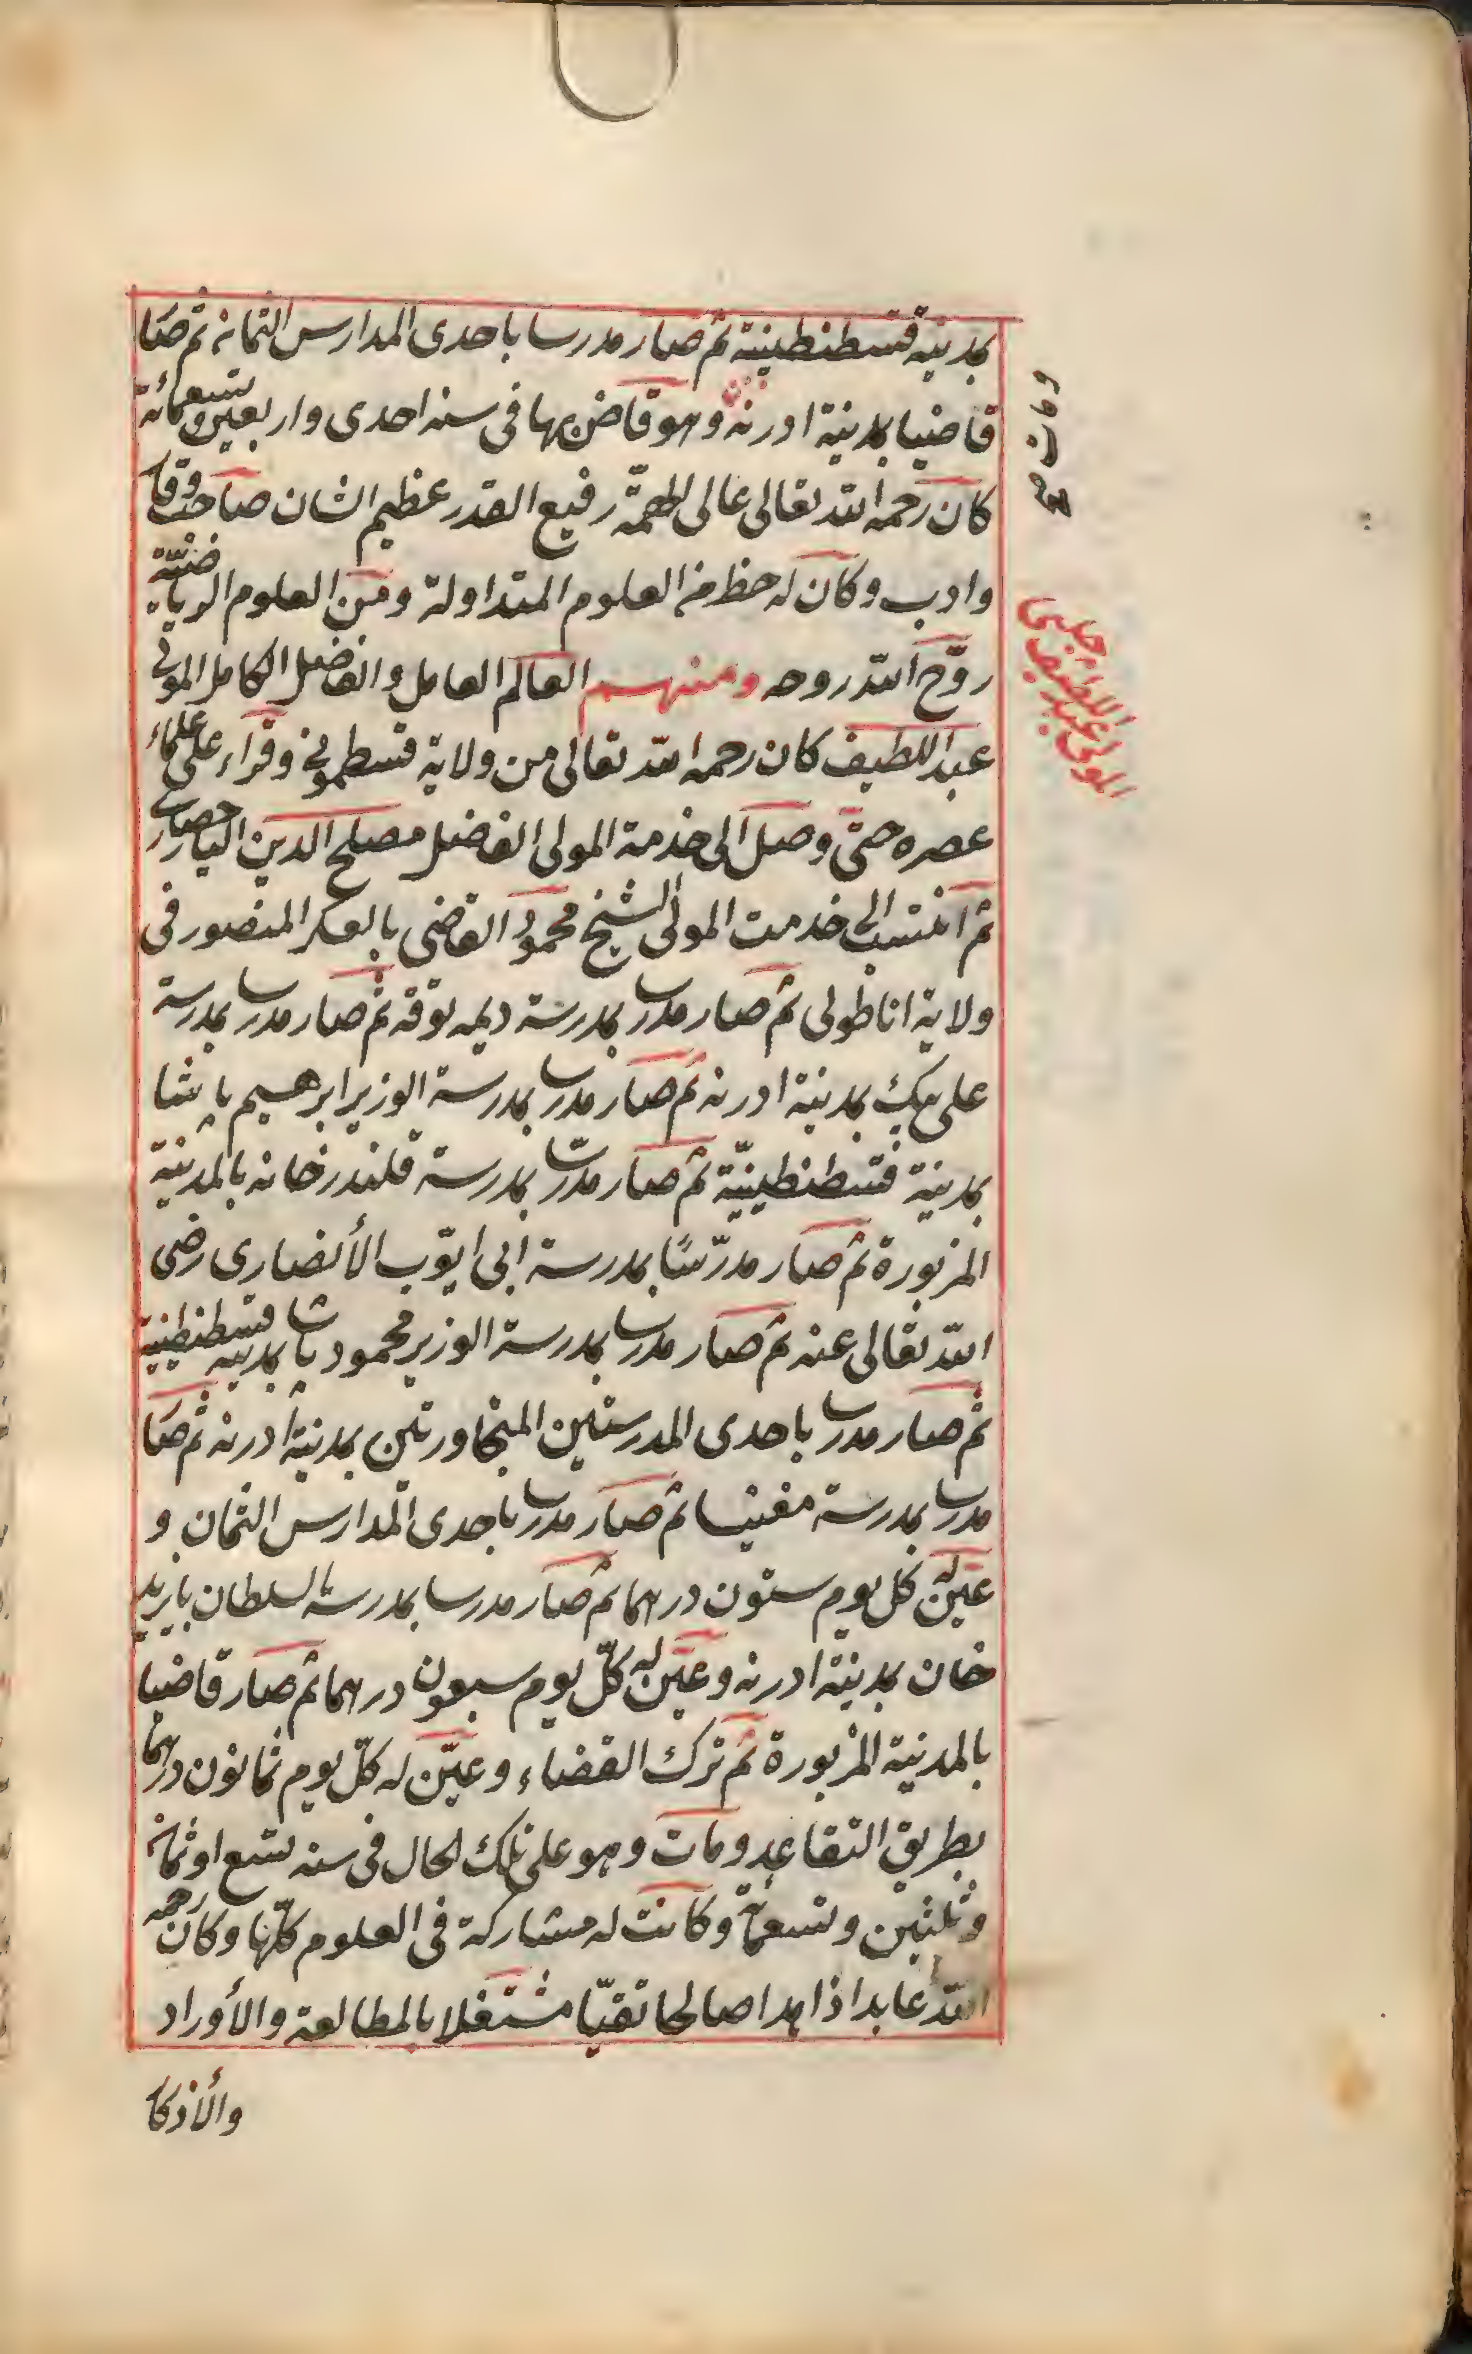 بمدينة قسطنطينية ثم صار مدرسا باحدى المدارس الثمانه ثم صا
قاضيا بمدينة ادرنه وهو قاض بها فى سنه احدى واربعين وتسعمائة
كان رحمه الله تعالى عالى الهمّة رفيع القدر عظيم الشان صاحب وقا
وادب وكان له حظ من العلوم المتداولة ومن العلوم الرياضيّة
روّح الله روحه ومنهم العالم العامل والفاضل الكامل المولى
عبد اللطيف كان رحمه الله تعالى من ولاية قسطمونى وقراء على علماء
عصره حتى وصل الى خدمة المولى الفاضل مصلح الدين اليارحصارى
ثم انتسب الى خدمت المولى الشيخ محمود القاضى بالعسكر المنصور فى
ولاية اناطولى ثم صار مدرسا بمدرسة ديمه توقه ثم صار مدرسا بمدرسة
على بيك بمدينة ادرنه ثم صار مدرسا بمدرسة الوزير ابرهيم پاشا
بمدينة قسطنطينيّة ثم صار مدرّسا بمدرسة قلندرخانه بالمدينة
المزبورة ثم صار مدرّسًا بمدرسة ابى ايّوب الأنصارى رضى
الله تعالى عنه ثم صار مدرسا بمدرسة الوزير محمود پاشا بمدينه قسطنطينية
ثم صار مدرسا باحدى المدرستين المتجاورتين بمدينة ادرنه ثم صا
مدرسا بمدرسة مغنيسا ثم صار مدرسا باحدى المدارس الثمان و
عيّن له كل يوم ستون درهما ثم صار مدرسا بمدرسة السلطان بايزيد
خان بمدينة ادرنه وعيّن له كلّ يوم سبعون درهما ثم صار قاضيا
بالمدينة المزبورة ثم ترك القضاء وعيّن له كلّ يوم ثمانون درهما
بطريق التقاعد ومات وهو على تلك الحال فى سنه تسع او ثمانه
وثلثين وتسعمائة وكانت له مشاركة فى العلوم كلّها وكان رحمه
الله عابدا ذاهدا صالحا تقيّا مشتغلا بالمطالعة والأوراد
والأذكا
ومات صح
المولى عبد اللطيف جلبى